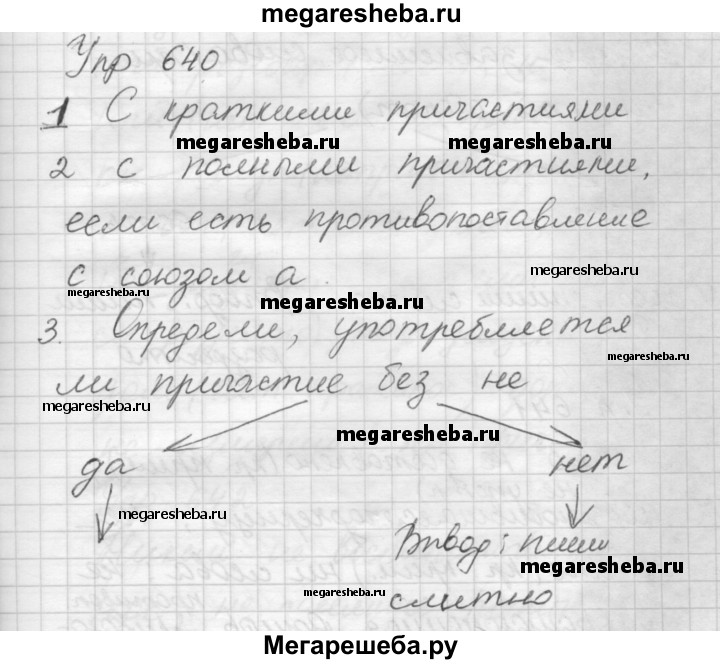 megaresheba.ru
Упр 640
1 С краткими причастиями
megaresheba.ru megaresheba.ru
2 с полными причастиями,
если есть противопоставление
с союзом а.
megaresheba.ru
megaresheba.ru megaresheba.ru
3. Определи, употребляется
megaresheba.ru
ли причастие без не
megaresheba.ru
megaresheba.ru
да нет
megaresheba.ru
Вывод: пиши
megaresheba.ru
megaresheba.ru
слитно
Мегарешеба.ру